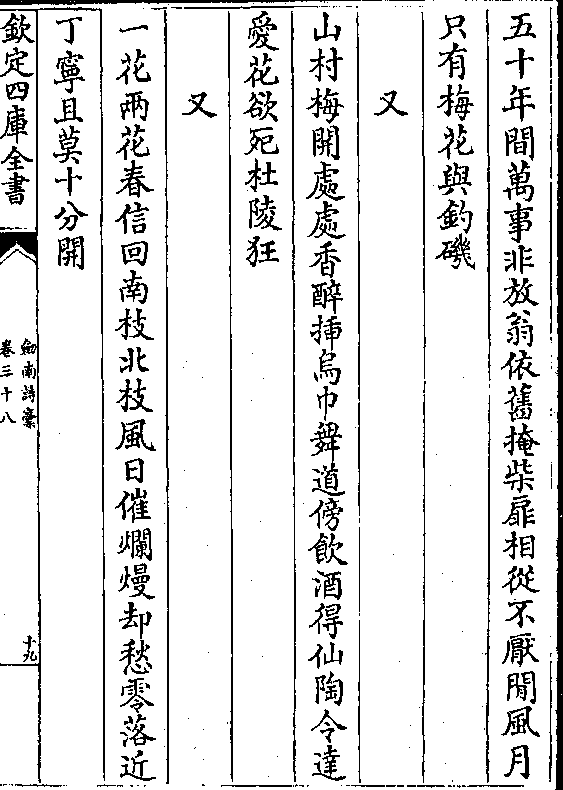 五十年間萬事非放翁依舊掩柴扉相從不厭閒風月
只有梅花與釣磯
又
山村梅開處處香醉揷烏巾舞道傍飲酒得仙陶令達
愛花欲死杜陵狂
又
一花兩花春信回南枝北枝風日催爛熳却愁零落近
丁寧且莫十分開
欽定四庫全書
劒南詩稾
卷三十八
十九